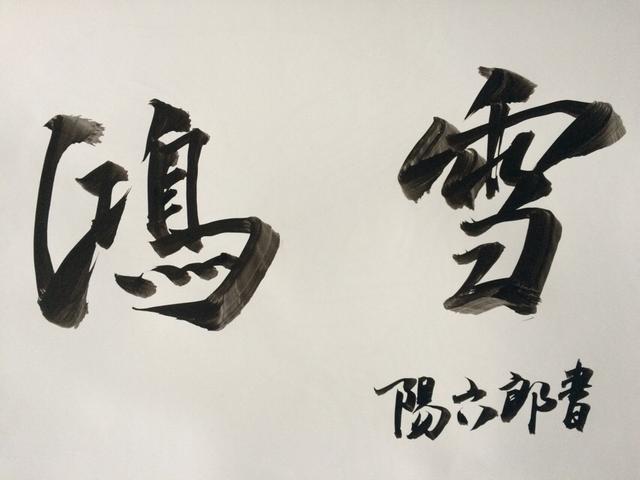 鴻雪
陽六郎書